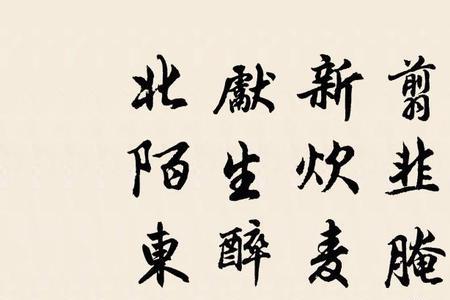 翦韭腌
新炊麦
獻生醉
北陌東